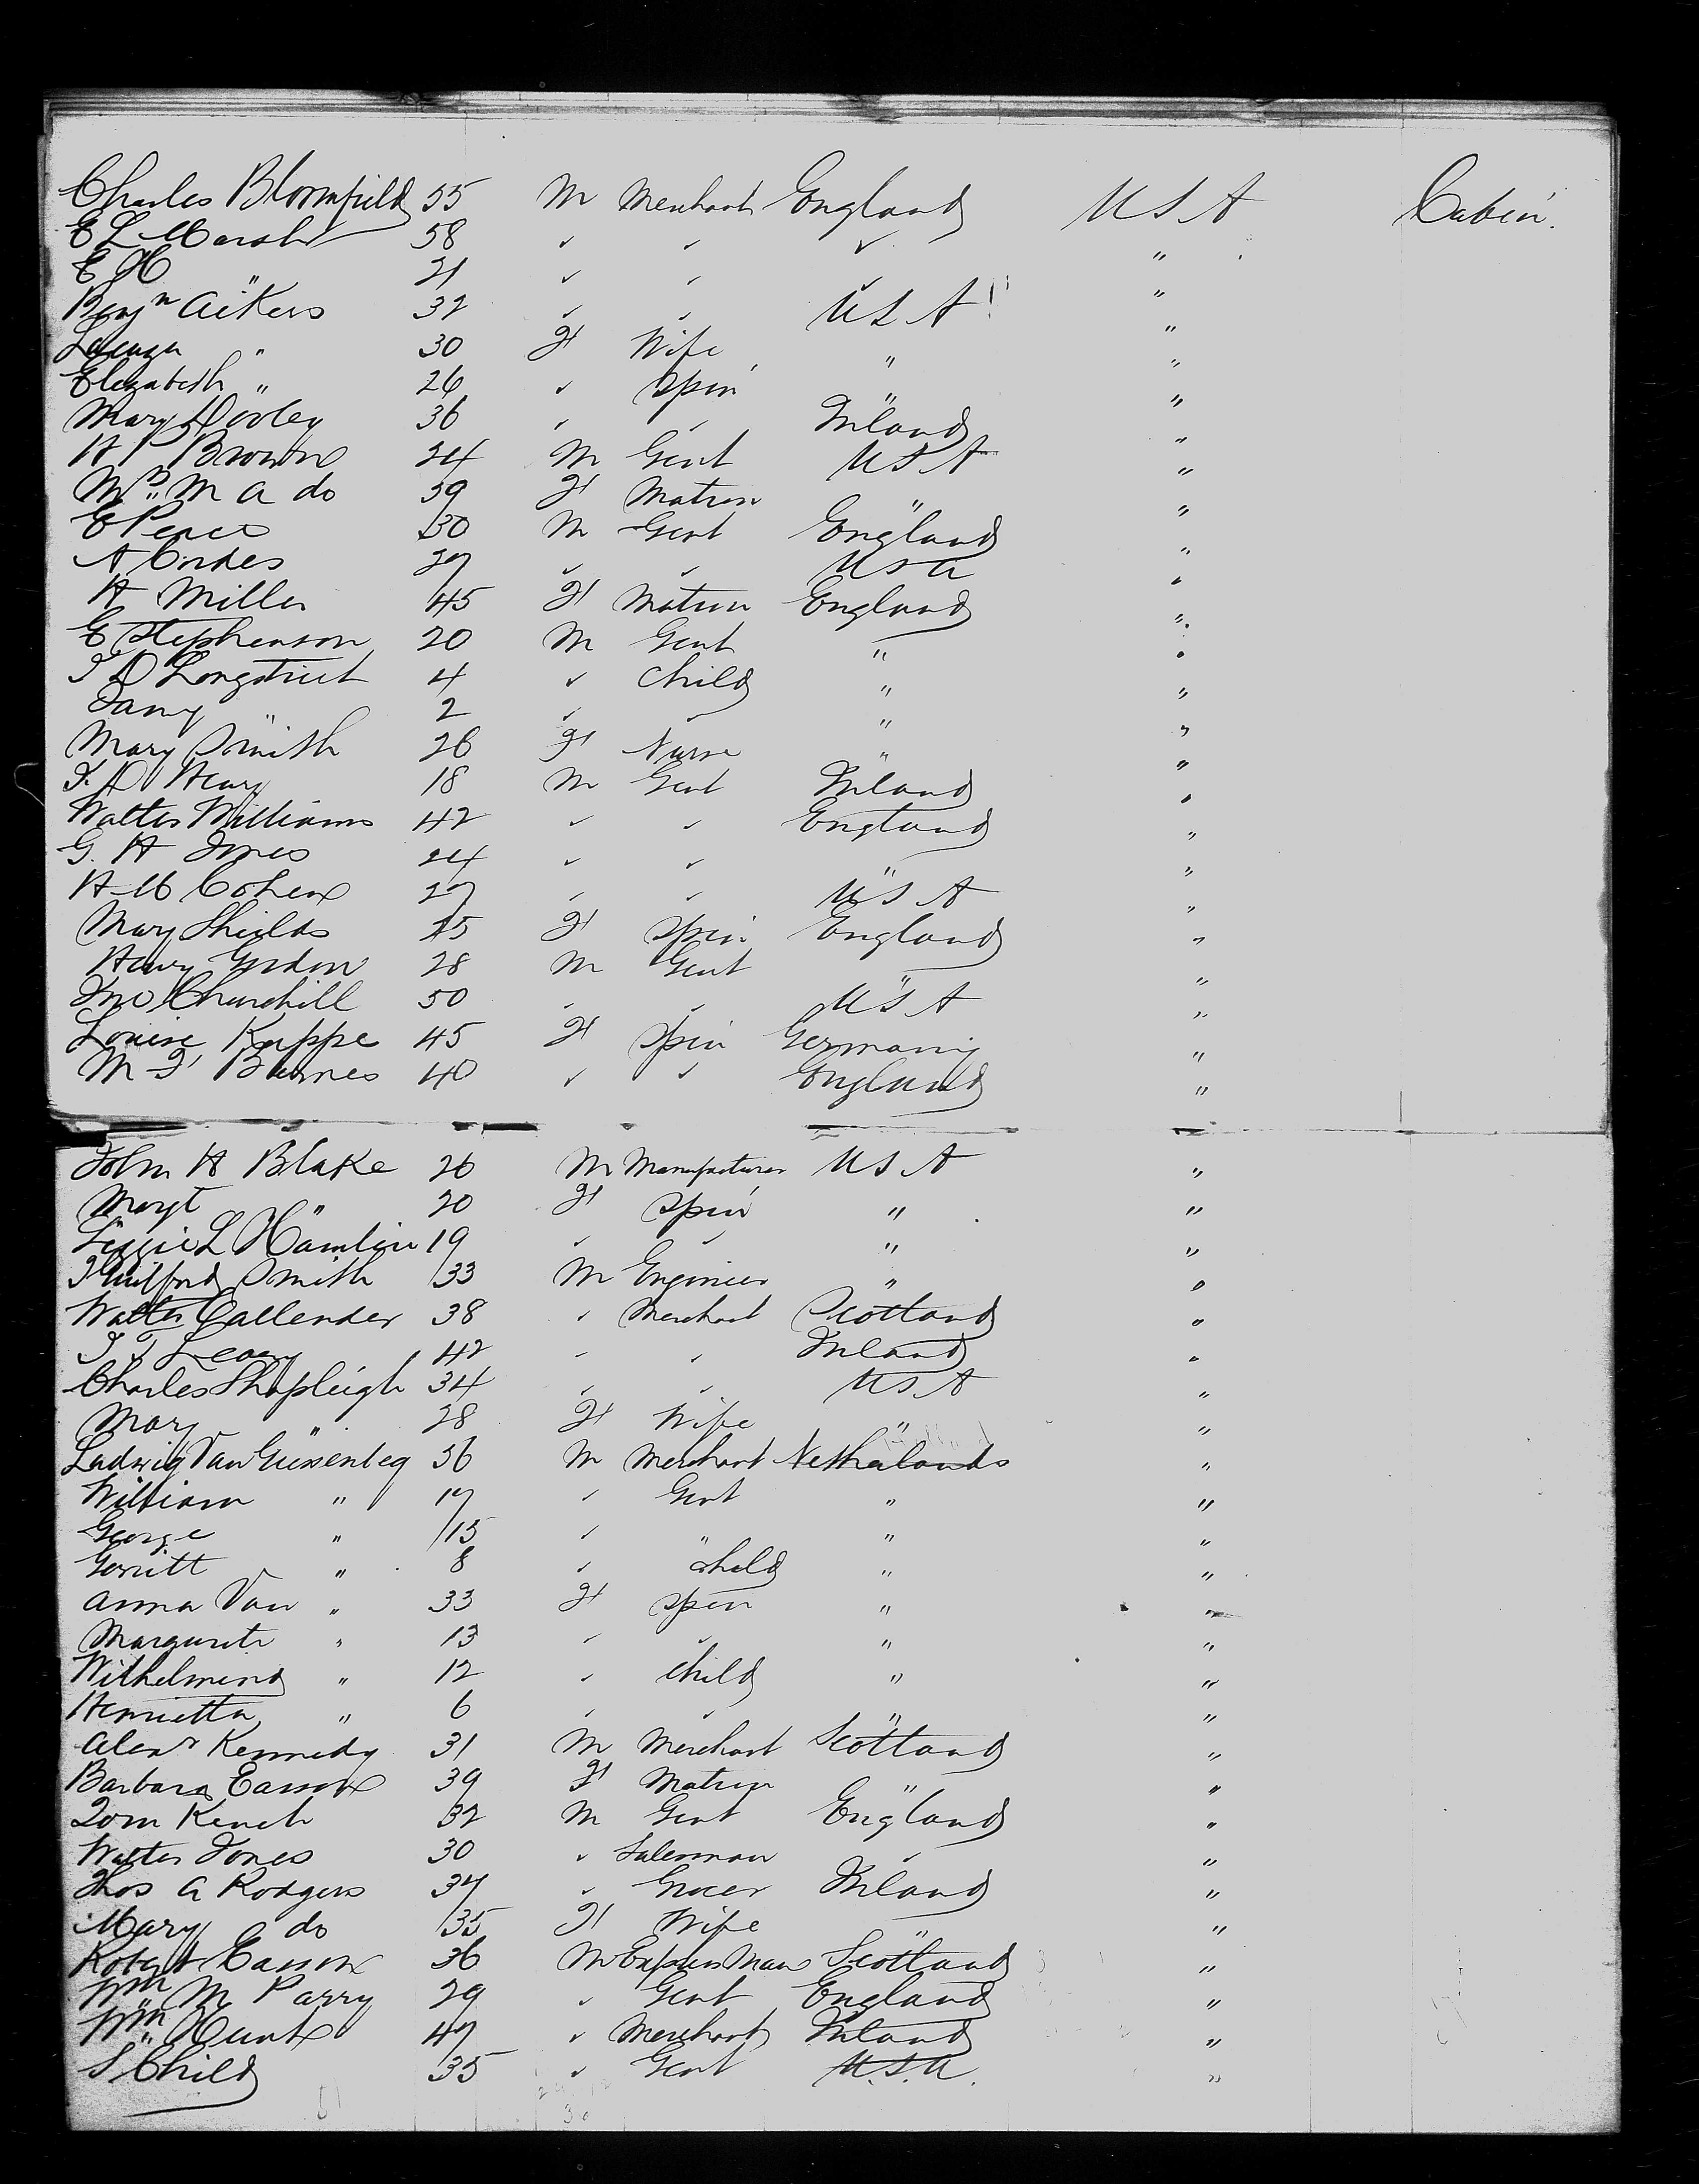 Charles Bloomfield 55 M Merchant England U S A Cabin.
E L Marsh 58 ✓ ✓ ✓ "
E H " 21 ✓ ✓ ✓ "
Benjn Aikers 32 ✓ ✓ U S A "
" 30 F Wife " "
Elizabeth " 26 ✓ Spin " "
Mary Dooley 36 ✓ ✓ Ireland "
H P Brown 24 M Gent U S A "
Mrs M A do 59 F Matron " "
E Peace 30 M Gent England "
A Cordes 27 ✓ ✓ U S A "
H Miller 45 F Matron England "
E Stephenson 20 M Gent " "
J D Longstreet 4 ✓ Child " "
Fany " 2 ✓ ✓ " "
Mary Smith 26 F Nurse " "
J. D Henry 18 M Gent Ireland "
Walter Williams 42 ✓ ✓ England "
G. H Jones 24 ✓ ✓ " "
H M Cohen 27 ✓ ✓ U S A "
Mary Shields 25 F Spin England "
Henry Gordon 28 M Gent " "
Jno Churchill 50 ✓ ✓ U S A "
Louise Kappe 45 F Spin Germany "
M F Barnes 40 ✓ ✓ England "
John H Blake 26 M Manufacturer U S A "
Margt " 20 F Spin " "
Lizzie L Hamlin 19 ✓ ✓ " "
J Guilford Smith 33 M Engineer " "
Walter Callender 38 ✓ Merchant Scotland "
J F Leary 42 ✓ ✓ Ireland "
Charles Shapleigh 34 ✓ ✓ U S A "
Mary " 28 F Wife " "
Ludwig Van 56 M Merchant Netherlands "
William " 17 ✓ Gent " "
George " 15 ✓ " " "
Gerritt " 8 ✓ child " "
Anna Van " 33 F Spin " "
Margurete " 13 ✓ ✓ " "
Wilhelmena " 12 ✓ Child " "
Henrietta " 6 ✓ ✓ " "
Alexr Kennedy 31 M Merchant Scotland "
Barbara Easson 39 F Matron " "
Tom Kench 32 M Gent England "
Walter Jones 30 ✓ Salesman ✓ "
Thos A Rodgers 37 ✓ Grocer Ireland "
Mary do 35 F Wife " "
Robert Easson 36 M Express Man Scotland "
Wm M Parry 29 ✓ Gent England "
Wm Hunt 47 ✓ Merchant Ireland "
S Child 35 ✓ Gent U.S.A. "